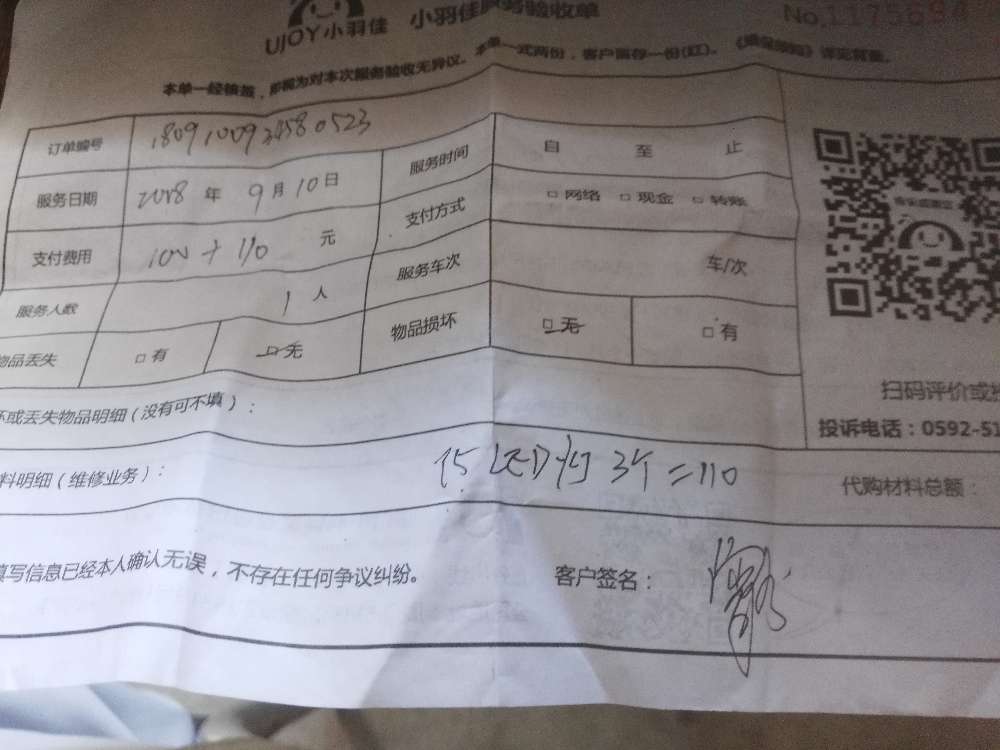 UJOY小羽佳 小羽佳服务验收单 No.1175694
本单一经核签，即视为对本次服务验收无异议。本单一式两份，客户留存一份(红)。
订单编号 1809100924580523
服务时间 自 至 止
服务日期 2018 年 9 月 10 日
支付方式 □ 网络 □ 现金 □ 转账
支付费用 100 + 110 元
服务车次 车/次
服务人数 1 人
物品丢失 □ 有 □ 无
物品损坏 □ 无 □ 有
扫码评价或
坏或丢失物品明细（没有可不填）：
投诉电话：0592-51
料明细（维修业务）： LED灯 3个 = 110
代购材料总额：
填写信息已经本人确认无误，不存在任何争议纠纷。
客户签名：